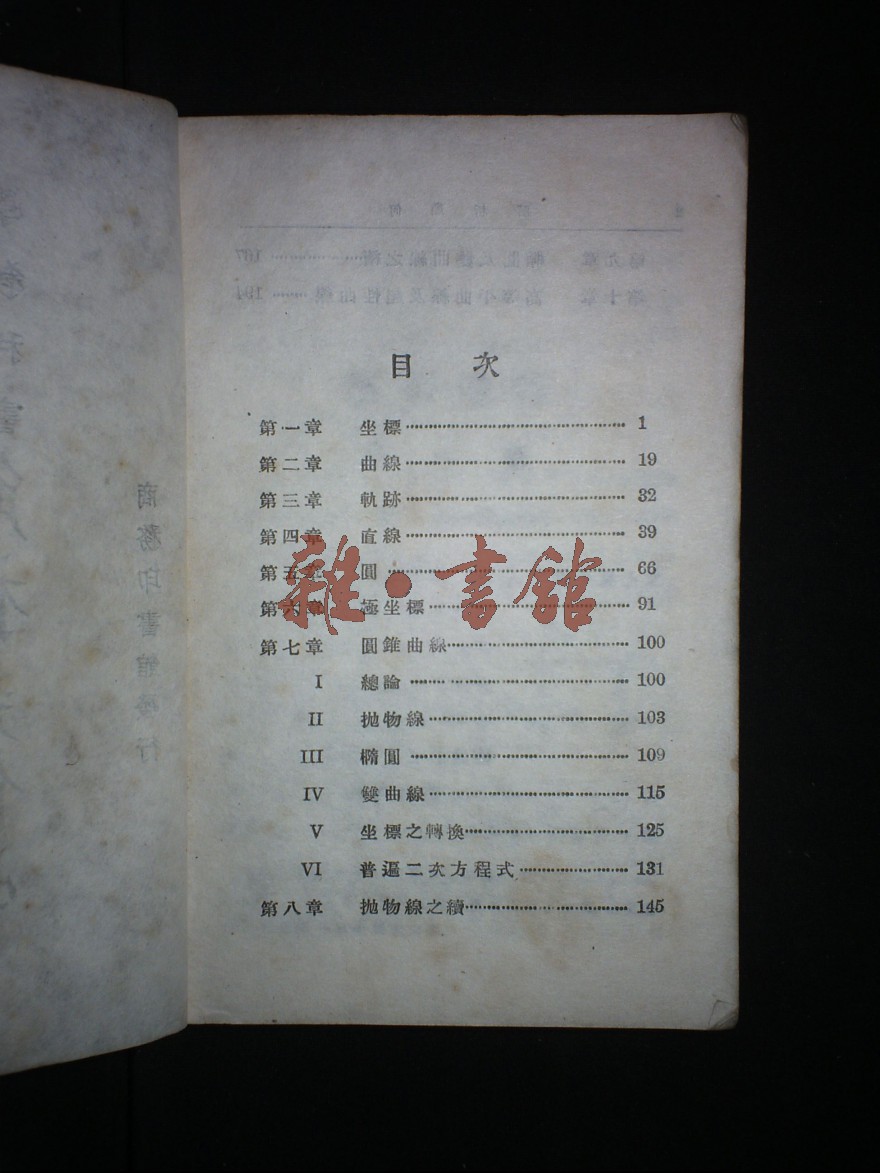 目 次
第一章 坐標 1
第二章 曲線 19
第三章 軌跡 32
第四章 直線 39
第五章 圓 66
第六章 極坐標 91
第七章 圓錐曲線 100
I 總論 100
II 拋物線 103
III 橢圓 109
IV 雙曲線 115
V 坐標之轉換 125
VI 普遍二次方程式 131
第八章 拋物線之續 145
雜·書館
商務印書館發行